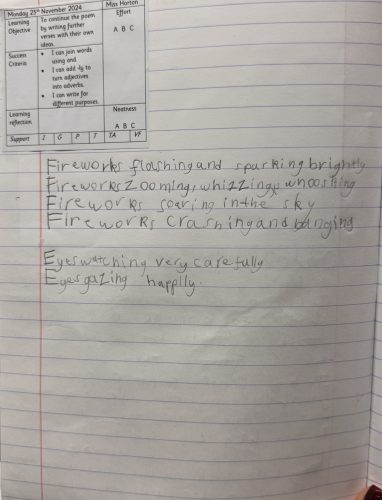 Monday 25th November 2024 Miss Horton
Learning Objective To continue the poem by writing further verses with their own ideas. Effort A B C
Success Criteria • I can join words using and.
• I can add -ly to turn adjectives into adverbs.
• I can write for different purposes.
Learning reflection Neatness A B C
Support I G P T TA VF
Fireworks flashing and sparking brightly
Fireworks zooming, whizzing, whooshing
Fireworks soaring in the sky
Fireworks crashing and banging
Eyes watching very carefully
Eyes gazing happily.